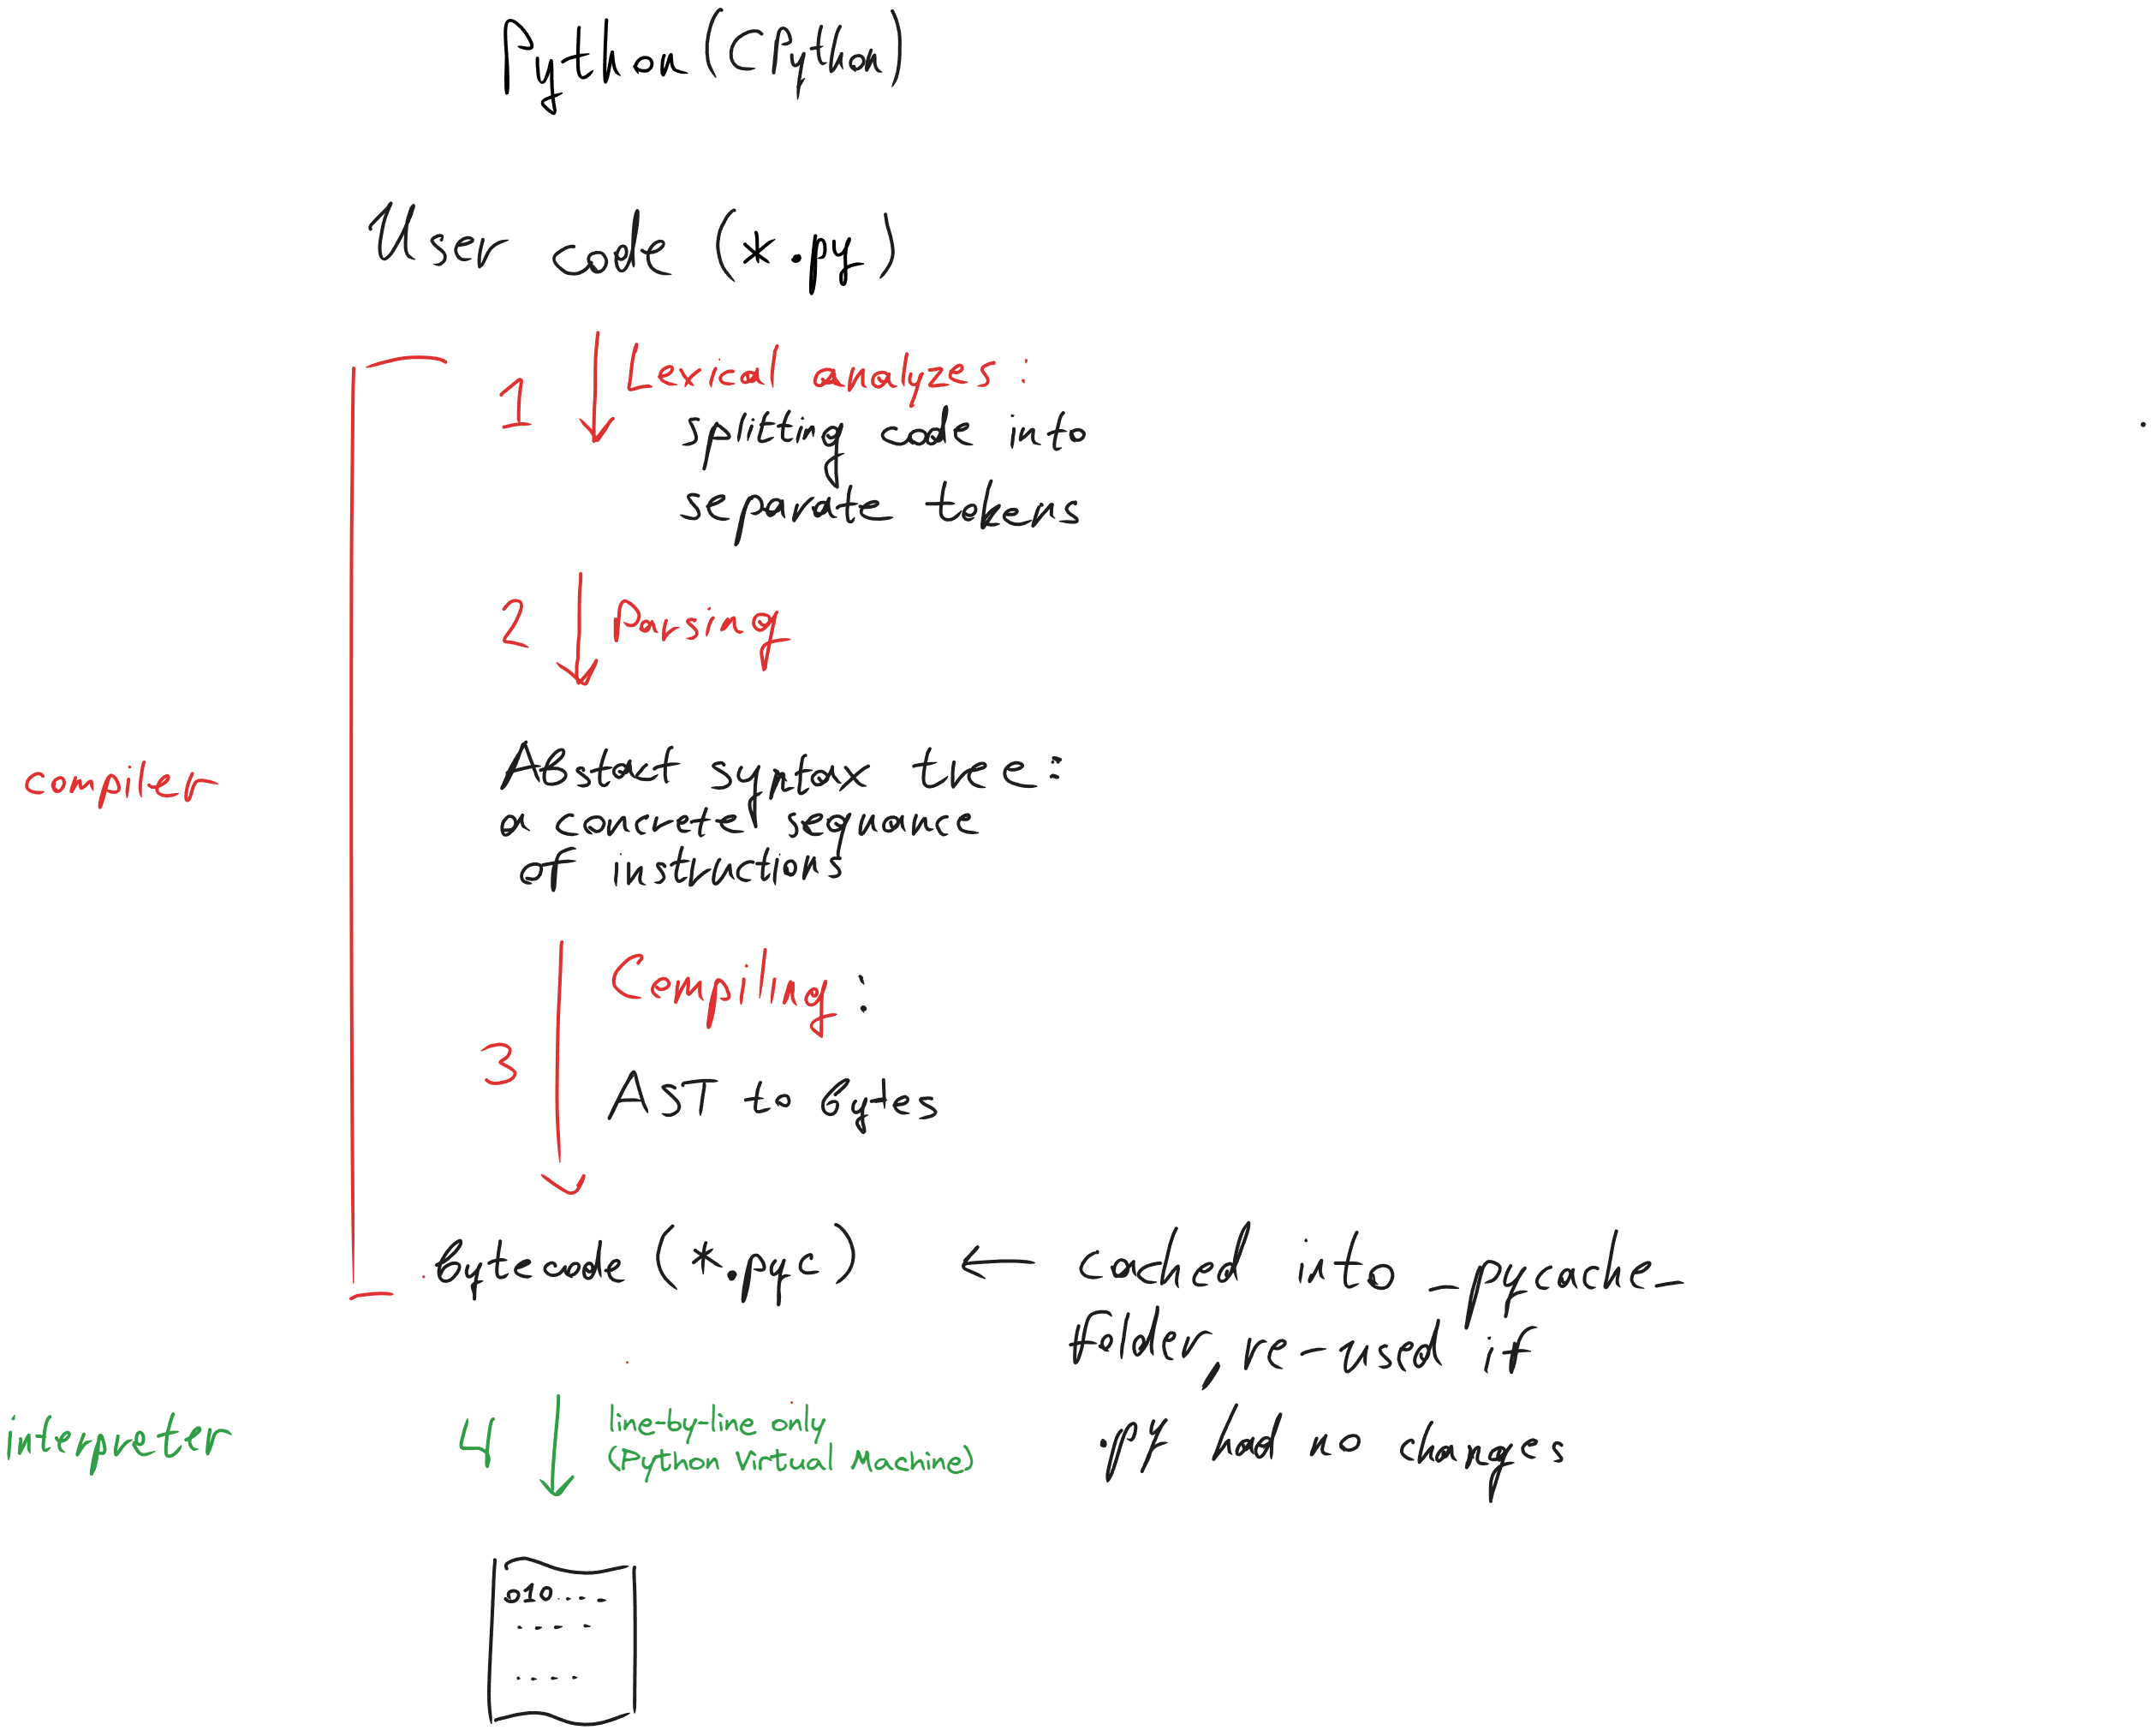 Python (CPython)
User code (*.py)
1
Lexical analyzes:
splitting code into
separate tokens
2
Parsing
compiler
Abstract syntax tree:
a concrete sequance
of instructions
3
Compiling:
AST to bytes
bytecode (*.pyc)
← cached into _pycache_
folder, re-used if
.py had no changes
interpreter
4
line-by-line only
(Python Virtual Machine)
010....
....
....